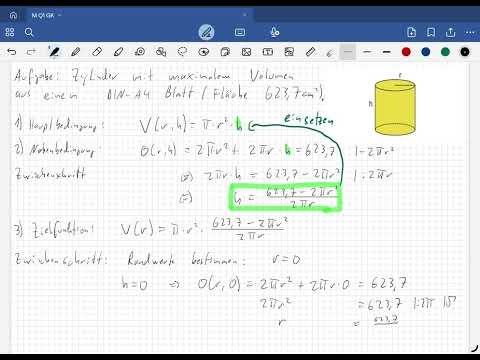 M Q1 GK
Aufgabe: Zylinder mit maximalem Volumen
aus einem DIN-A4 Blatt (Fläche 623,7cm²).
r
h
1) Hauptbedingung: V(r,h) = π·r²·h einsetzen
2) Nebenbedingung: O(r,h) = 2πr² + 2πr·h = 623,7 |-2πr²
Zwischenschritt (=) 2πr·h = 623,7 - 2πr² |:2πr
(=) h = (623,7 - 2πr²)/(2πr)
3) Zielfunktion: V(r) = π·r²·(623,7 - 2πr²)/(2πr)
Zwischenschritt: Randwerte bestimmen: r = 0
h = 0 ⇒ O(r,0) = 2πr² + 2πr·0 = 623,7
2πr² = 623,7 |:2π |√
r = 623,7